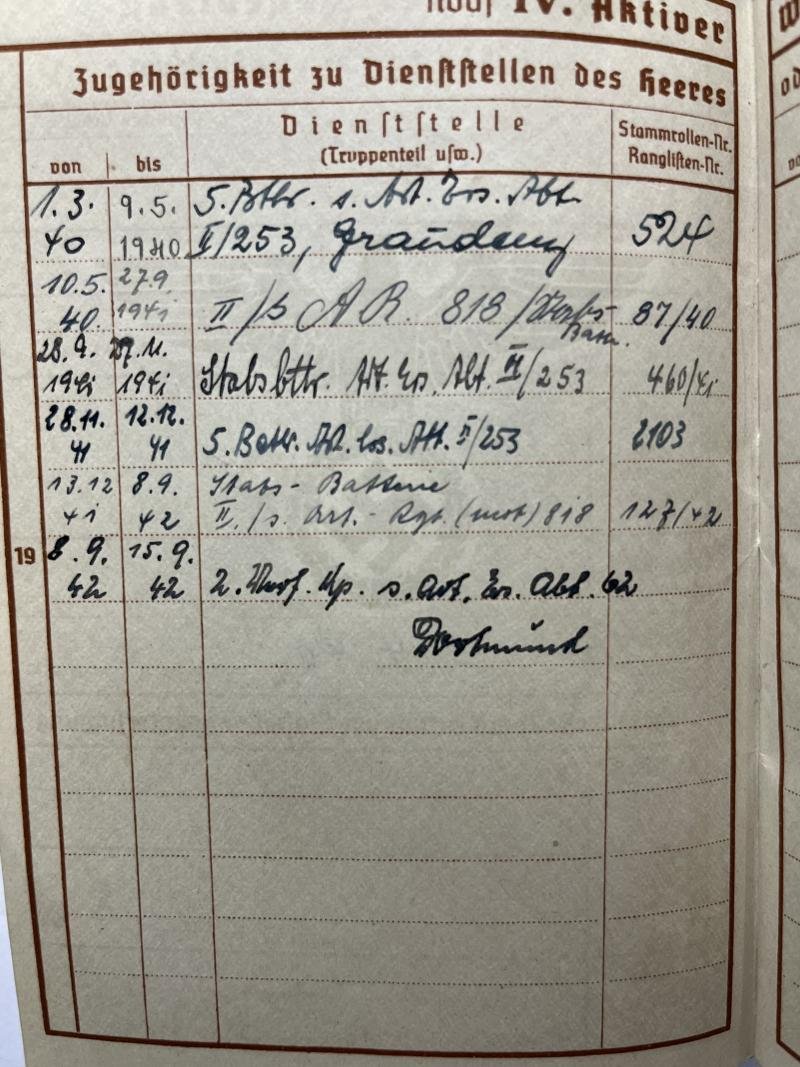 noch IV. Aktiver
Zugehörigkeit zu Dienststellen des Heeres
von bis
Dienststelle
(Truppenteil usw.)
Stammrollen-Nr.
Ranglisten-Nr.
1.3. 9.5. 5. Bttr. s. Art. Ers. Abt.
40 1940 II/253, Graudenz 524
10.5. 27.9.
40. 1941 II/s A.R. 818/Stabs- 87/40
Battr.
28.9. 27.11.
1941 1941 Stabsbttr. Art. Ers. Abt. II/253 460/41
28.11. 12.12.
41 41 5. Battr. Art. Ers. Abt. II/253 2103
13.12 8.9. Stabs-Batterie
41 42 II./s. Art.-Rgt. (mot) 818 127/42
19 8.9. 15.9.
42 42 2. Kp. s. Art. Ers. Abt. 62
Dortmund